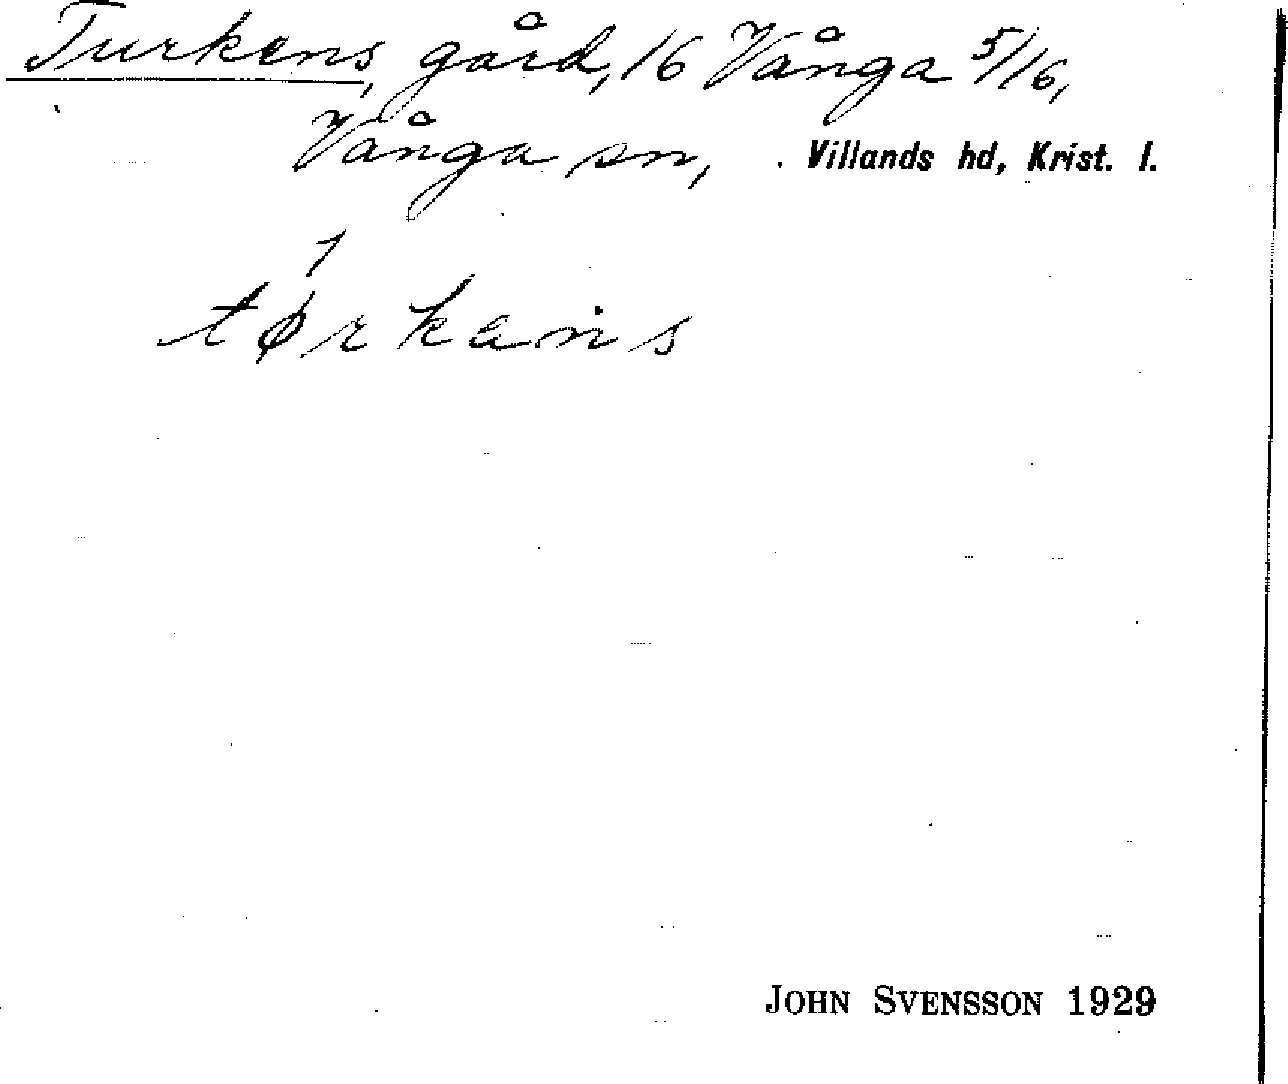 Turkens, gård, 16 Vånga 5/16,
Vånga sn, Villands hd, Krist. l.
1
tørkans
JOHN SVENSSON 1929